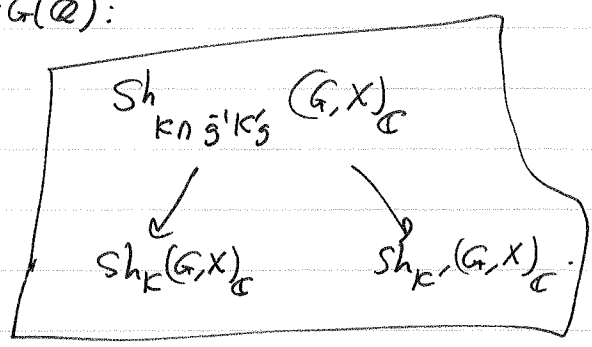 G(ℚ):
Sh_{K∩g⁻¹K'g}(G,X)_ℂ
Sh_K(G,X)_ℂ Sh_{K'}(G,X)_ℂ.